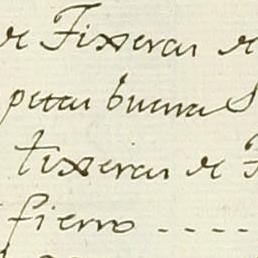 de Tixeras de
petas buenas
tixeras de
fierro ----